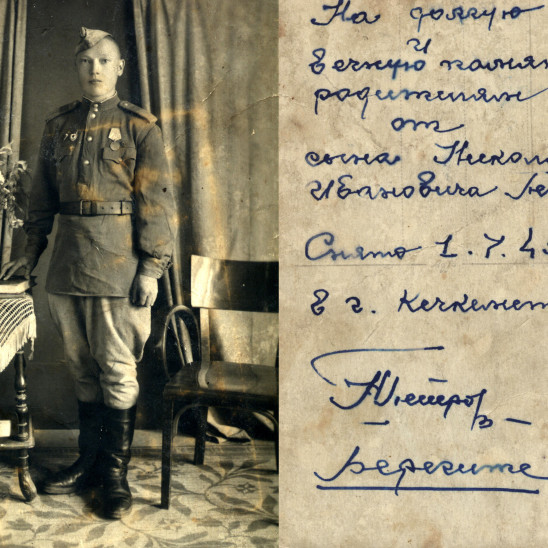 На долгую
и
вечную памят
родителям
от
сына Никол
Ивановича
Снято 1.7.4
в г. Кечкемет
Берегите